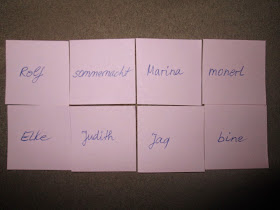 Rolf
sommernacht
Marina
monerl
Elke
Judith
Jaq
bine